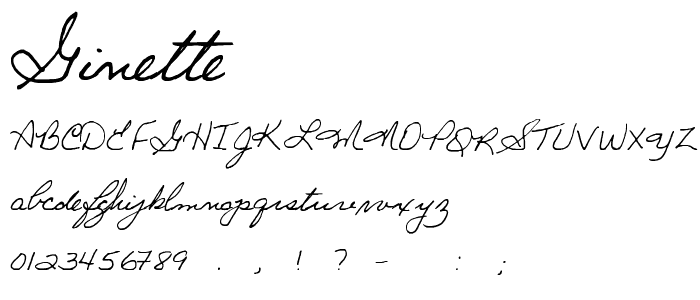 Ginette
ABCDEFGHIJKLMNOPQRSTUVWXYZ
abcdefghijklmnopqrstuvwxyz
0123456789 . , ! ? - : ;